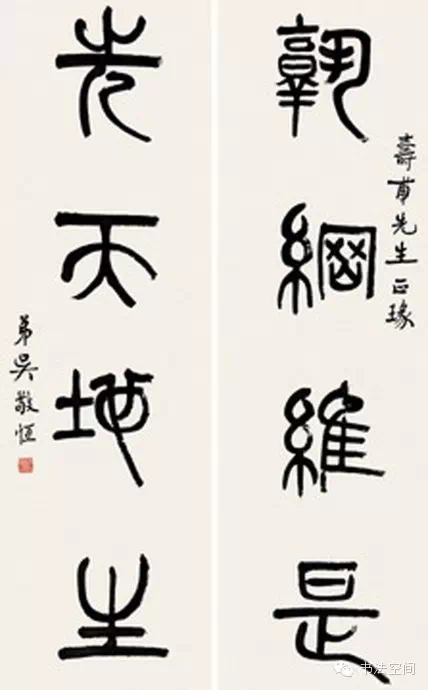 壽甫先生正瑑
孰綱維是
先天地生
弟吳敬恒
书法空间